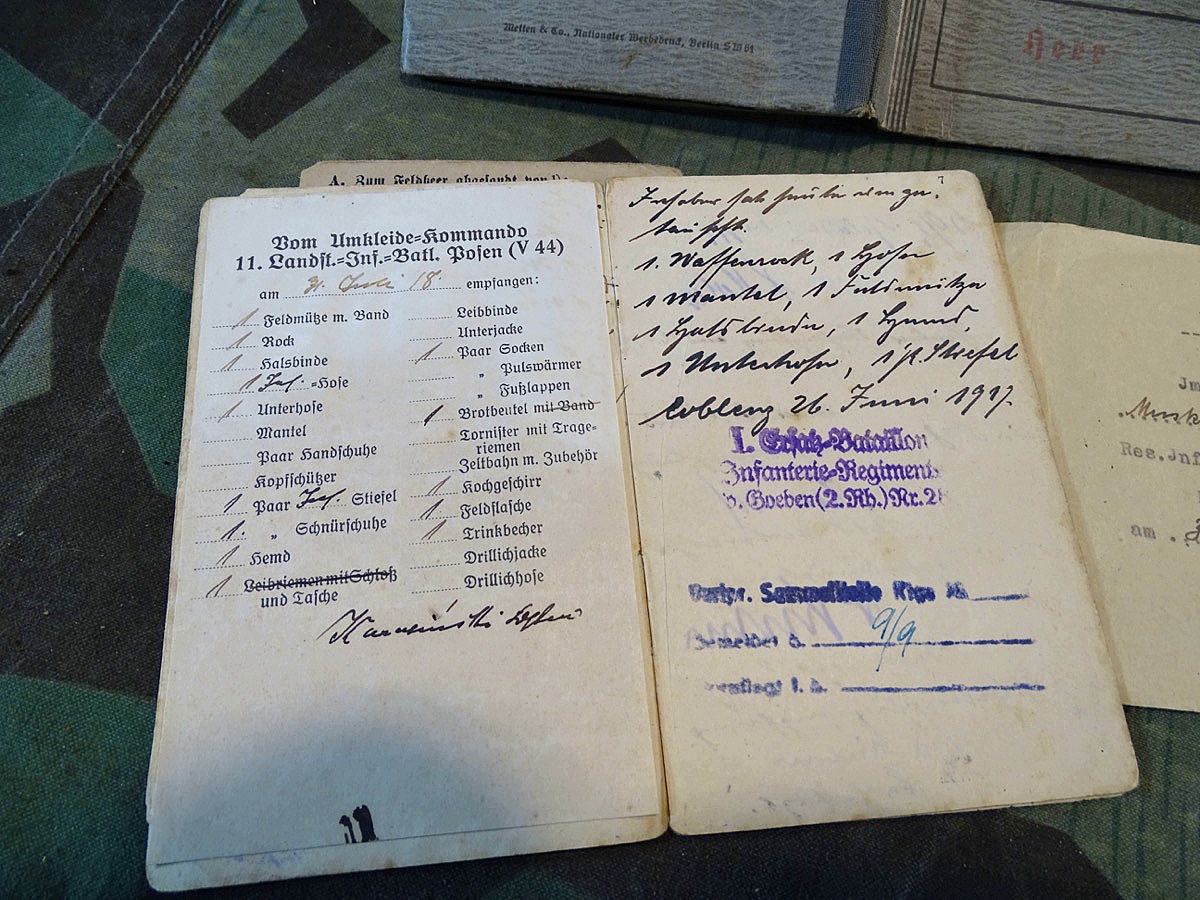 Metten & Co., Nationaler Werbedruck, Berlin SW 61
Heer
A. Zum Feldheer abgesandt von
Vom Umkleide=Kommando
11. Landst.=Inf.=Batl. Posen (V 44)
am 31. Juli 18. empfangen:
1 Feldmütze m. Band
1 Rock
1 Halsbinde
1 Inf. =Hose
1 Unterhose
Mantel
Paar Handschuhe
Kopfschützer
1 Paar Inf. Stiefel
1. „ Schnürschuhe
1 Hemd
1 Leibriemen mit Schloß
und Tasche
Leibbinde
Unterjacke
1 Paar Socken
„ Pulswärmer
„ Fußlappen
1 Brotbeutel mit Band
Tornister mit Trage=
riemen
Zeltbahn m. Zubehör
1 Kochgeschirr
1 Feldflasche
1 Trinkbecher
Drillichjacke
Drillichhose
7
Inhaber hat heute einge.
tauscht.
1. Waffenrock, 1 Hosen
1 Mantel, 1 Feldmütze
1 Halsbinde, 1 Hemd,
1 Unterhose, 1 p. Stiefel
Coblenz 26. Juni 1917.
I. Ersatz=Bataillon
Infanterie=Regiments
v. Goeben (2. Rh.) Nr. 28
Sammelstelle
Gemeldet d. 9/9
Res. Inf
am